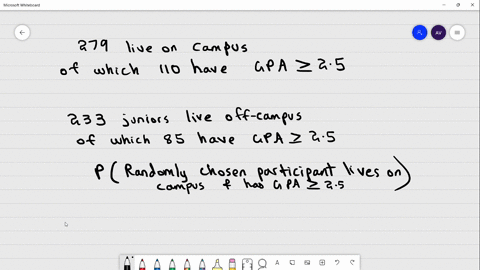 Microsoft Whiteboard
AV
279 live on campus
of which 110 have GPA ≥ 2.5
233 juniors live off-campus
of which 85 have GPA ≥ 2.5
P (Randomly chosen participant lives on
campus & has GPA ≥ 2.5)